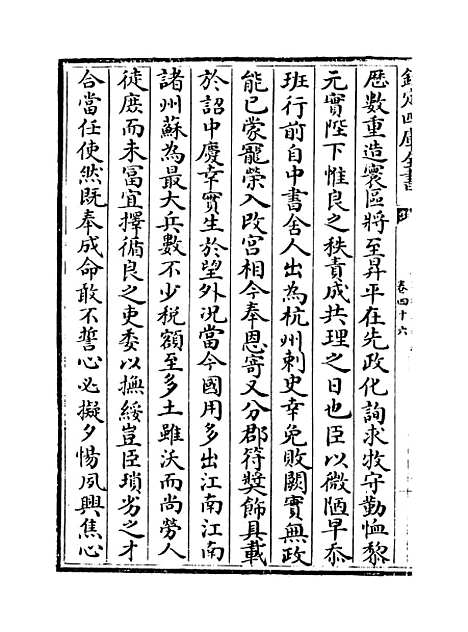 欽定四庫全書
卷四十六
歴數重造寰區將至昇平在先政化詢求牧守勤恤黎
元實陛下惟良之秩責成共理之日也臣以微陋早忝
班行前自中書舍人出為杭州刺史幸免敗闕實無政
能已蒙寵榮入改宫相今奉恩寄又分郡符奬飾具載
於詔中慶幸實生於望外况當今國用多出江南江南
諸州蘇為最大兵數不少税額至多土雖沃而尚勞人
徒庶而未富宜擇循良之吏委以撫綏豈臣瑣劣之才
合當任使然既奉成命敢不誓心必擬夕惕夙興焦心